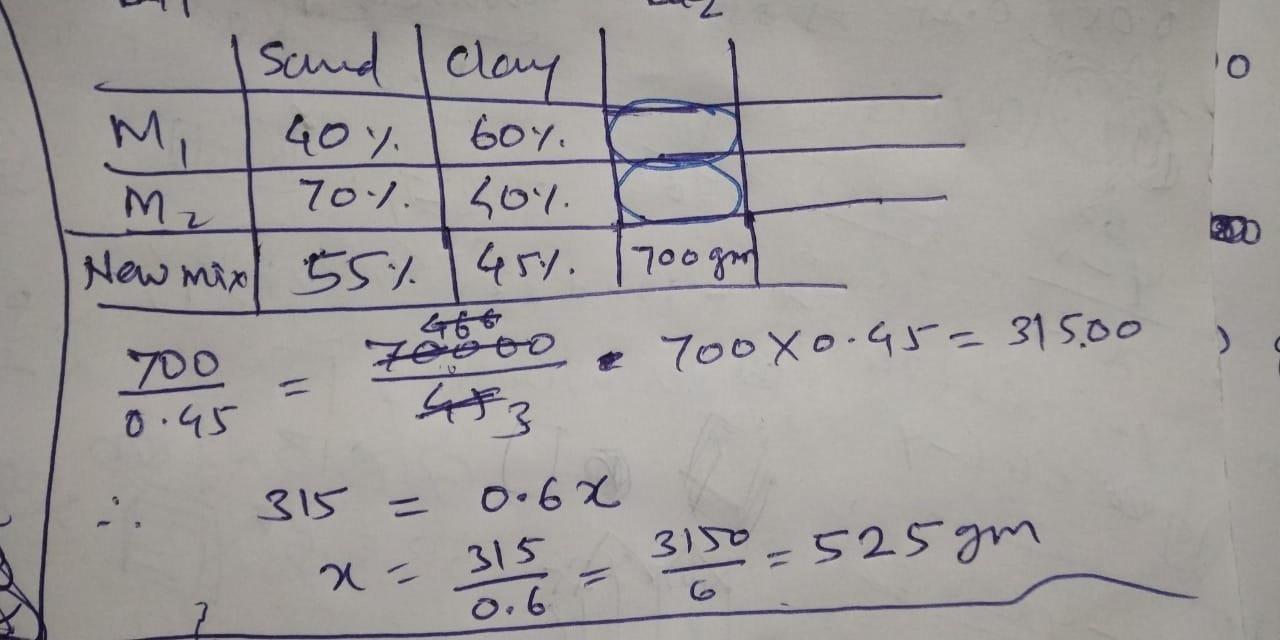 Sand Clay
M₁ 40% 60%
M₂ 70% 40%
New mix 55% 45% 700gm
466
700/0.45 = 70000/45 3 • 700 X 0.45 = 315.00
∴ 315 = 0.6x
x = 315/0.6 = 3150/6 = 525 gm